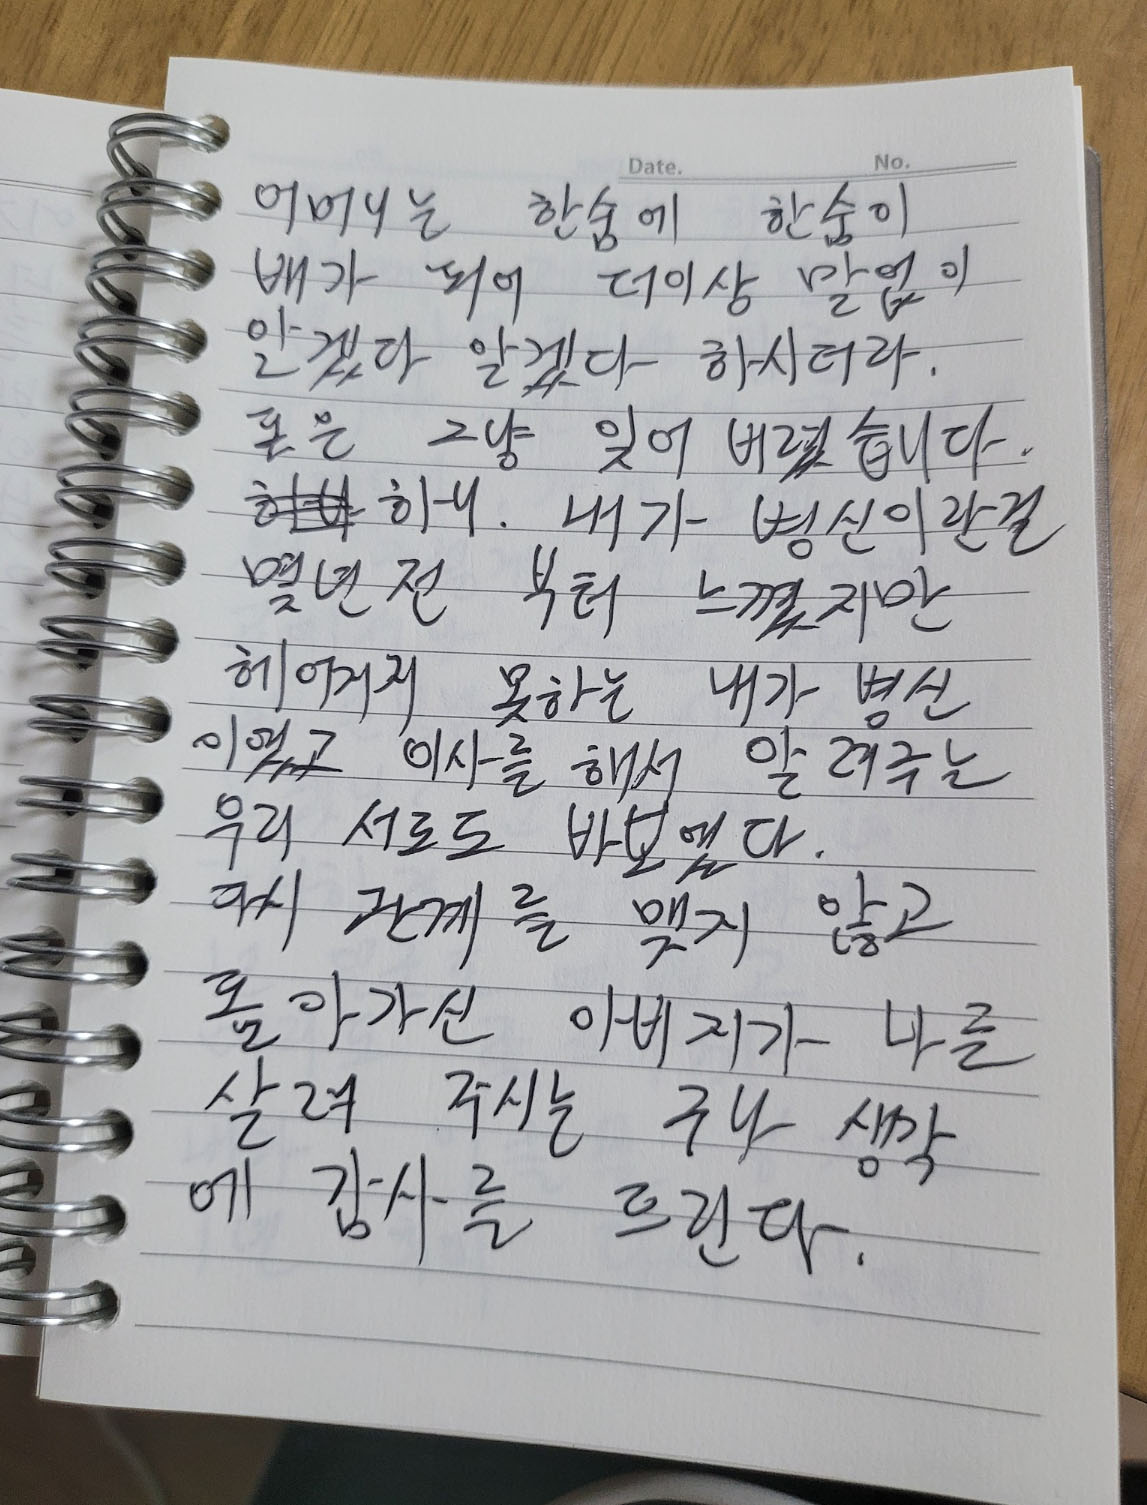 Date. No.
어머니는 한숨에 한숨이
배가 되어 더이상 말없이
알겠다 알겠다 하시더라.
폰은 그냥 잊어 버렸습니다.
하니. 내가 병신이란걸
몇년전 부터 느꼈지만
헤어지지 못하는 내가 병신
이였고 이사를 해서 알려주는
우리 서로도 바보였다.
다시 관계를 맺지 않고
돌아가신 아버지가 나를
살려 주시는 구나 생각
에 감사를 드린다.